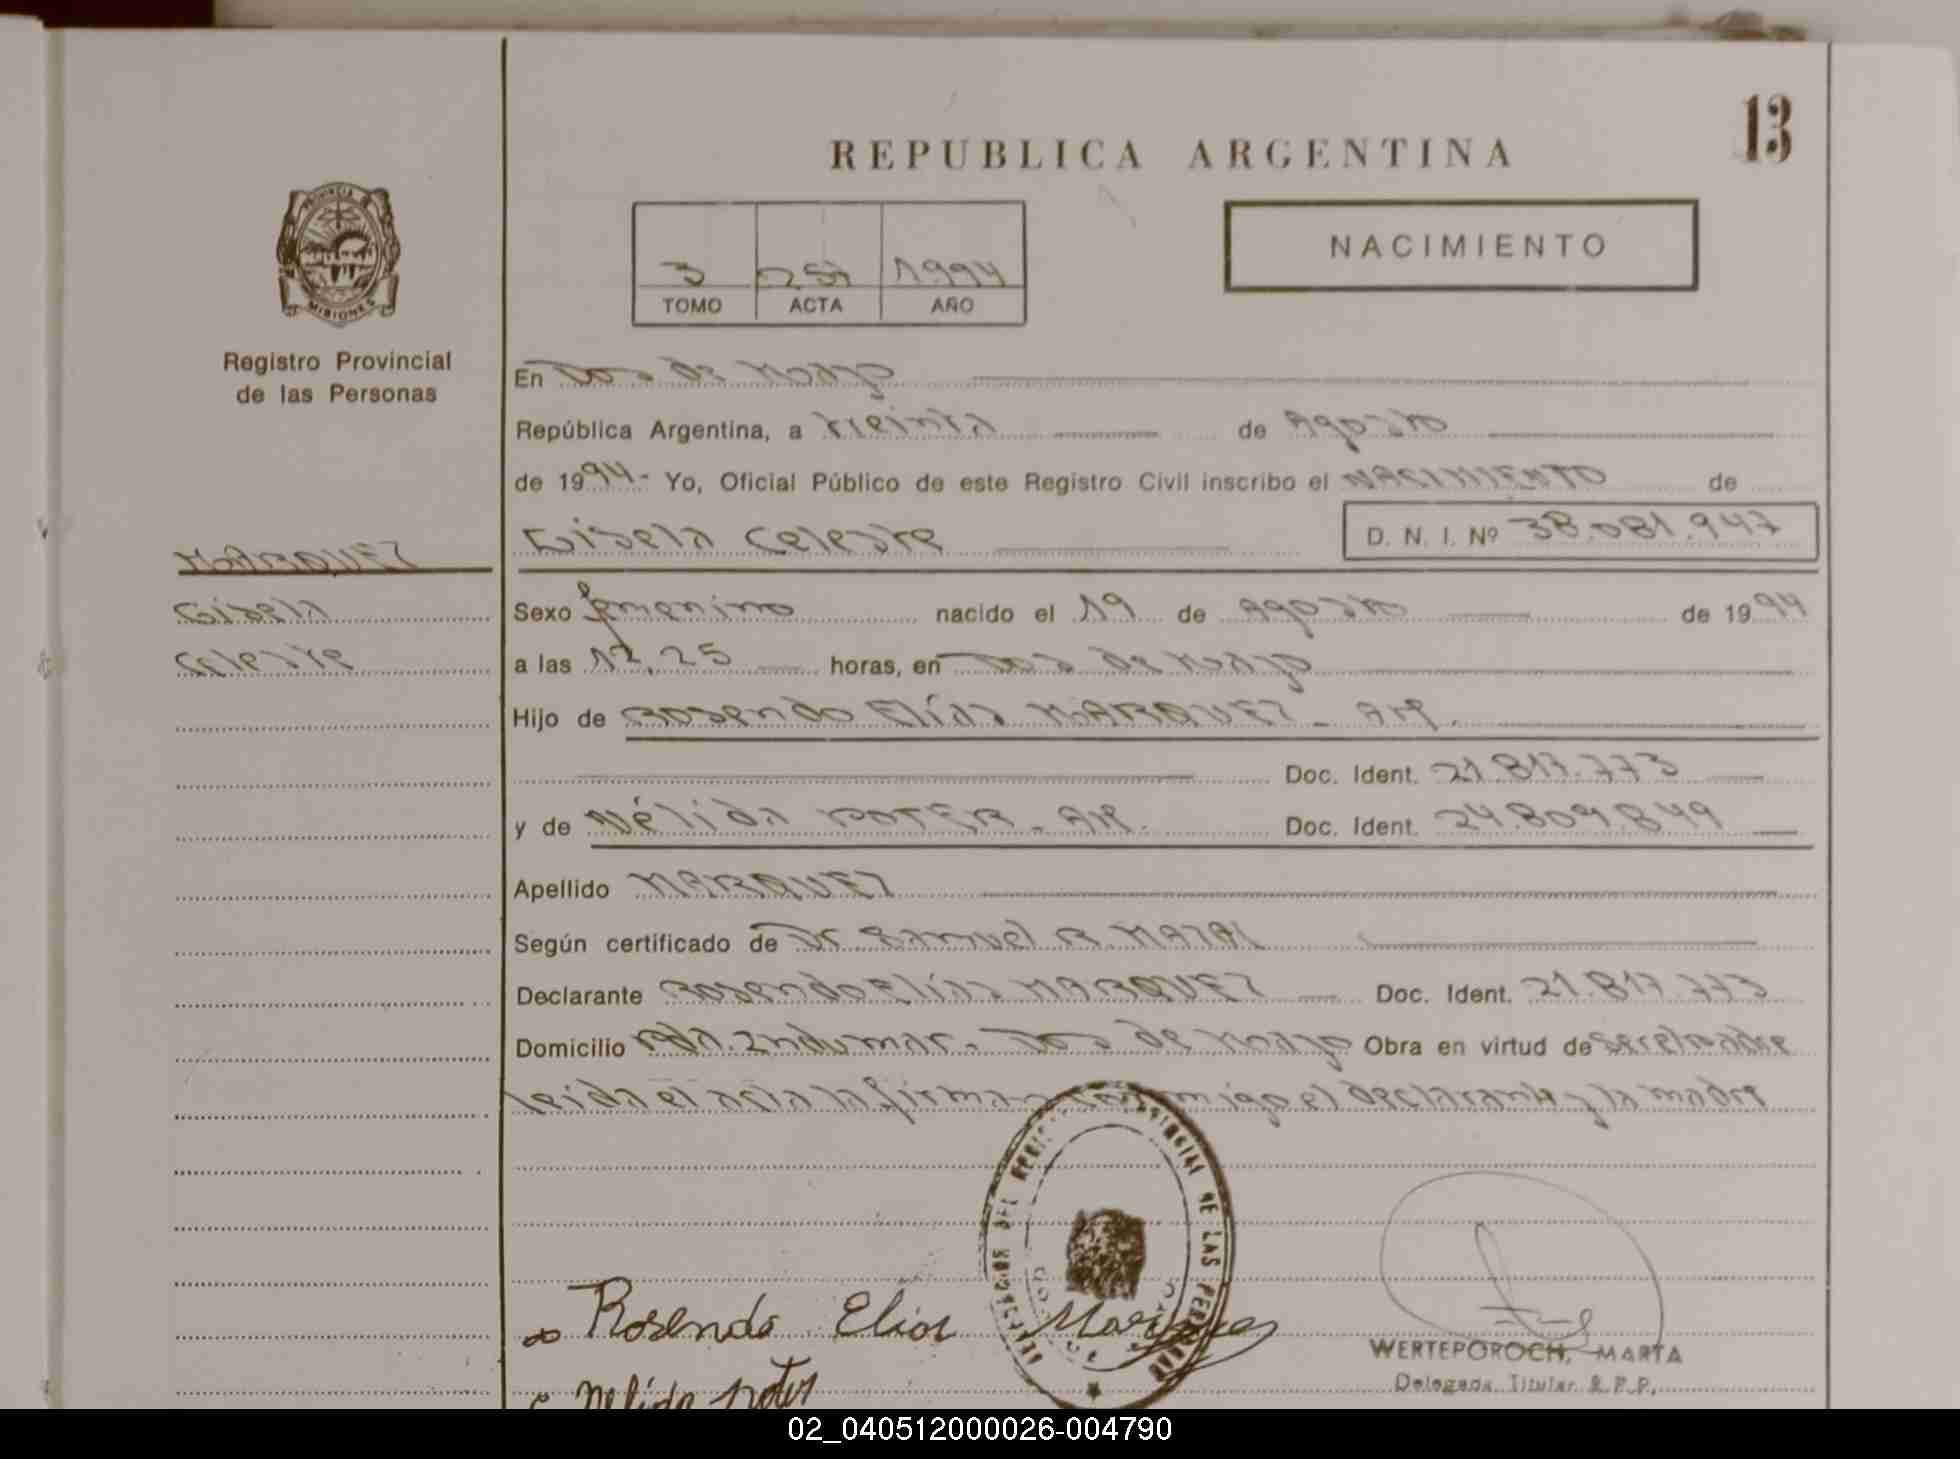 13
REPUBLICA ARGENTINA
PROVINCIA DE
MISIONES
NACIMIENTO
3 1994
TOMO ACTA AÑO
Registro Provincial
de las Personas
En Dos de Mayo
República Argentina, a treinta de Agosto
de 1994.- Yo, Oficial Público de este Registro Civil inscribo el NACIMIENTO de
Gisela Celeste D. N. I. Nº 38.081.947
MARQUEZ
Gisela
Celeste
Sexo femenino nacido el 19 de Agosto de 1994
a las 12,25 horas, en Dos de Mayo
Hijo de Rosendo Elías MARQUEZ - Arg.
Doc. Ident. 21.817.773
y de Nélida - Arg. Doc. Ident. 24.809.849
Apellido MARQUEZ
Según certificado de Dr. Samuel R.
Declarante Rosendo Elías MARQUEZ Doc. Ident. 21.817.773
Domicilio Indumar - Dos de Mayo Obra en virtud de ser el padre
leida el acta la firman conmigo el declarante y la madre
DE LAS PERSONAS
Rosendo Elias Marques
Nelida
WERTEPOROCH, MARTA
Delegada Titular R.P.P.
02_040512000026-004790